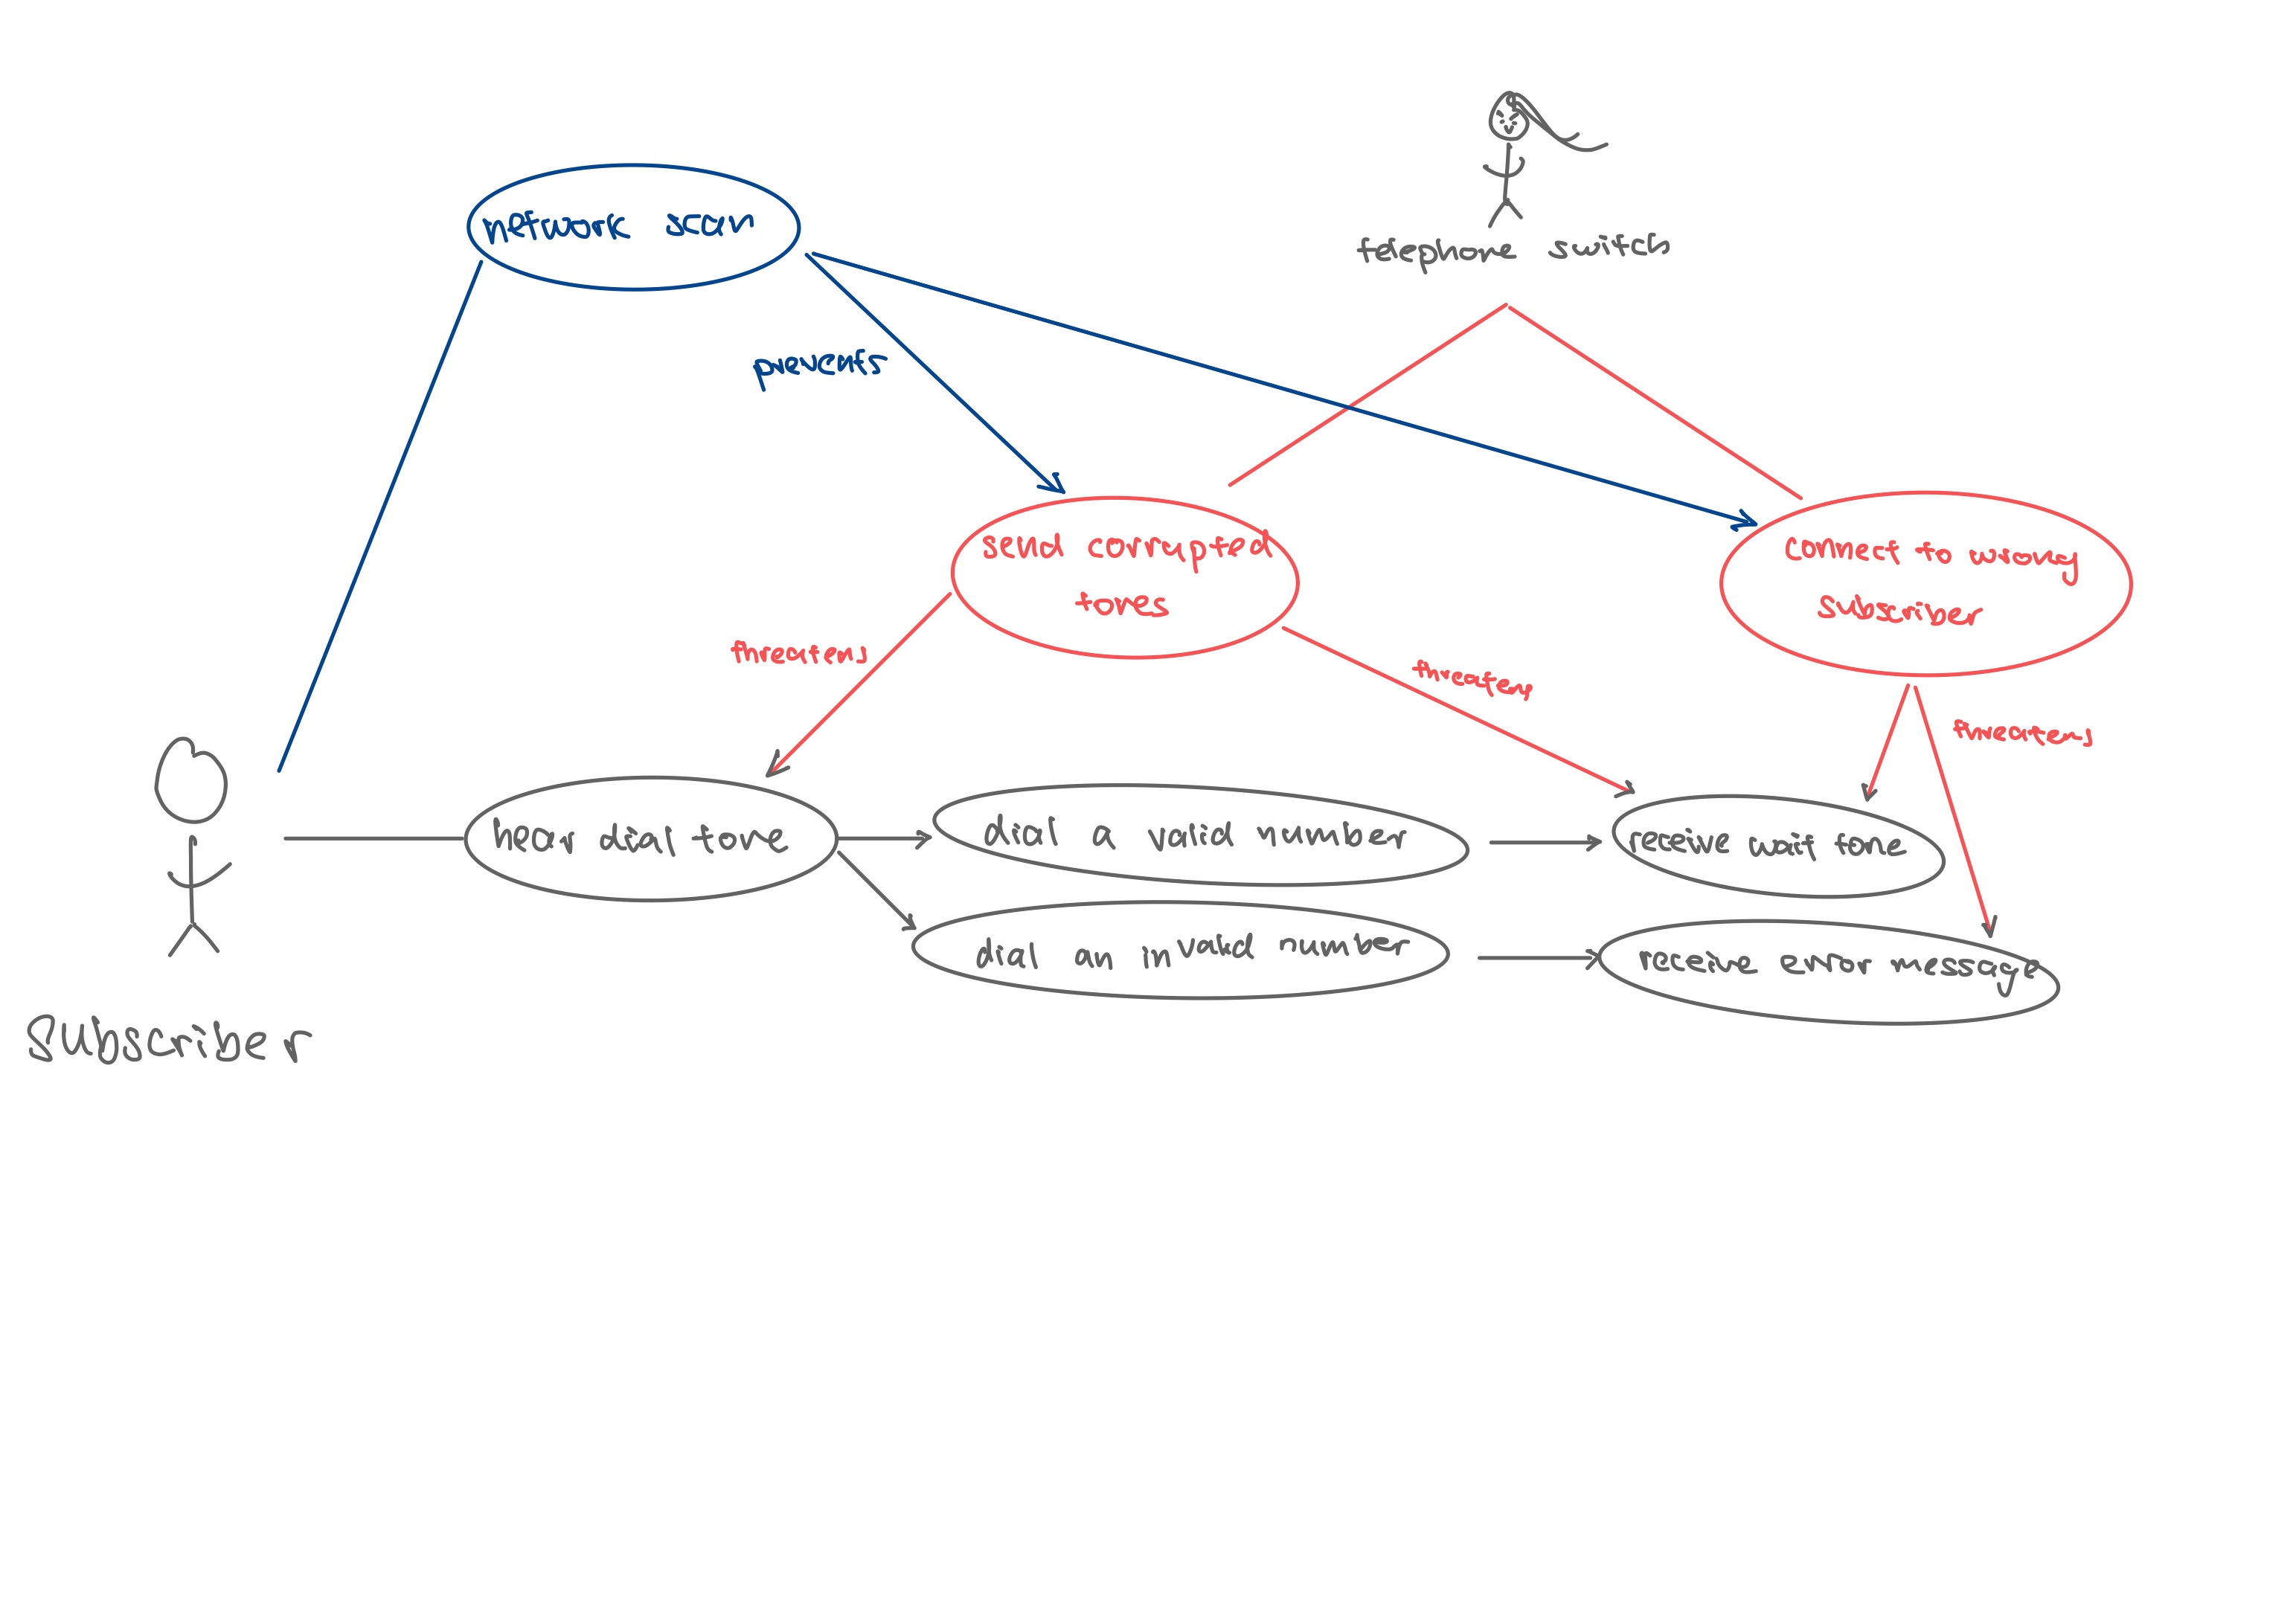 network scan
telephone switch
prevents
send corrupted
tones
connect to wrong
subscriber
threatens
threatens
threatens
hear dial tone
dial a valid number
receive wait tone
dial an invalid number
receive error message
Subscriber